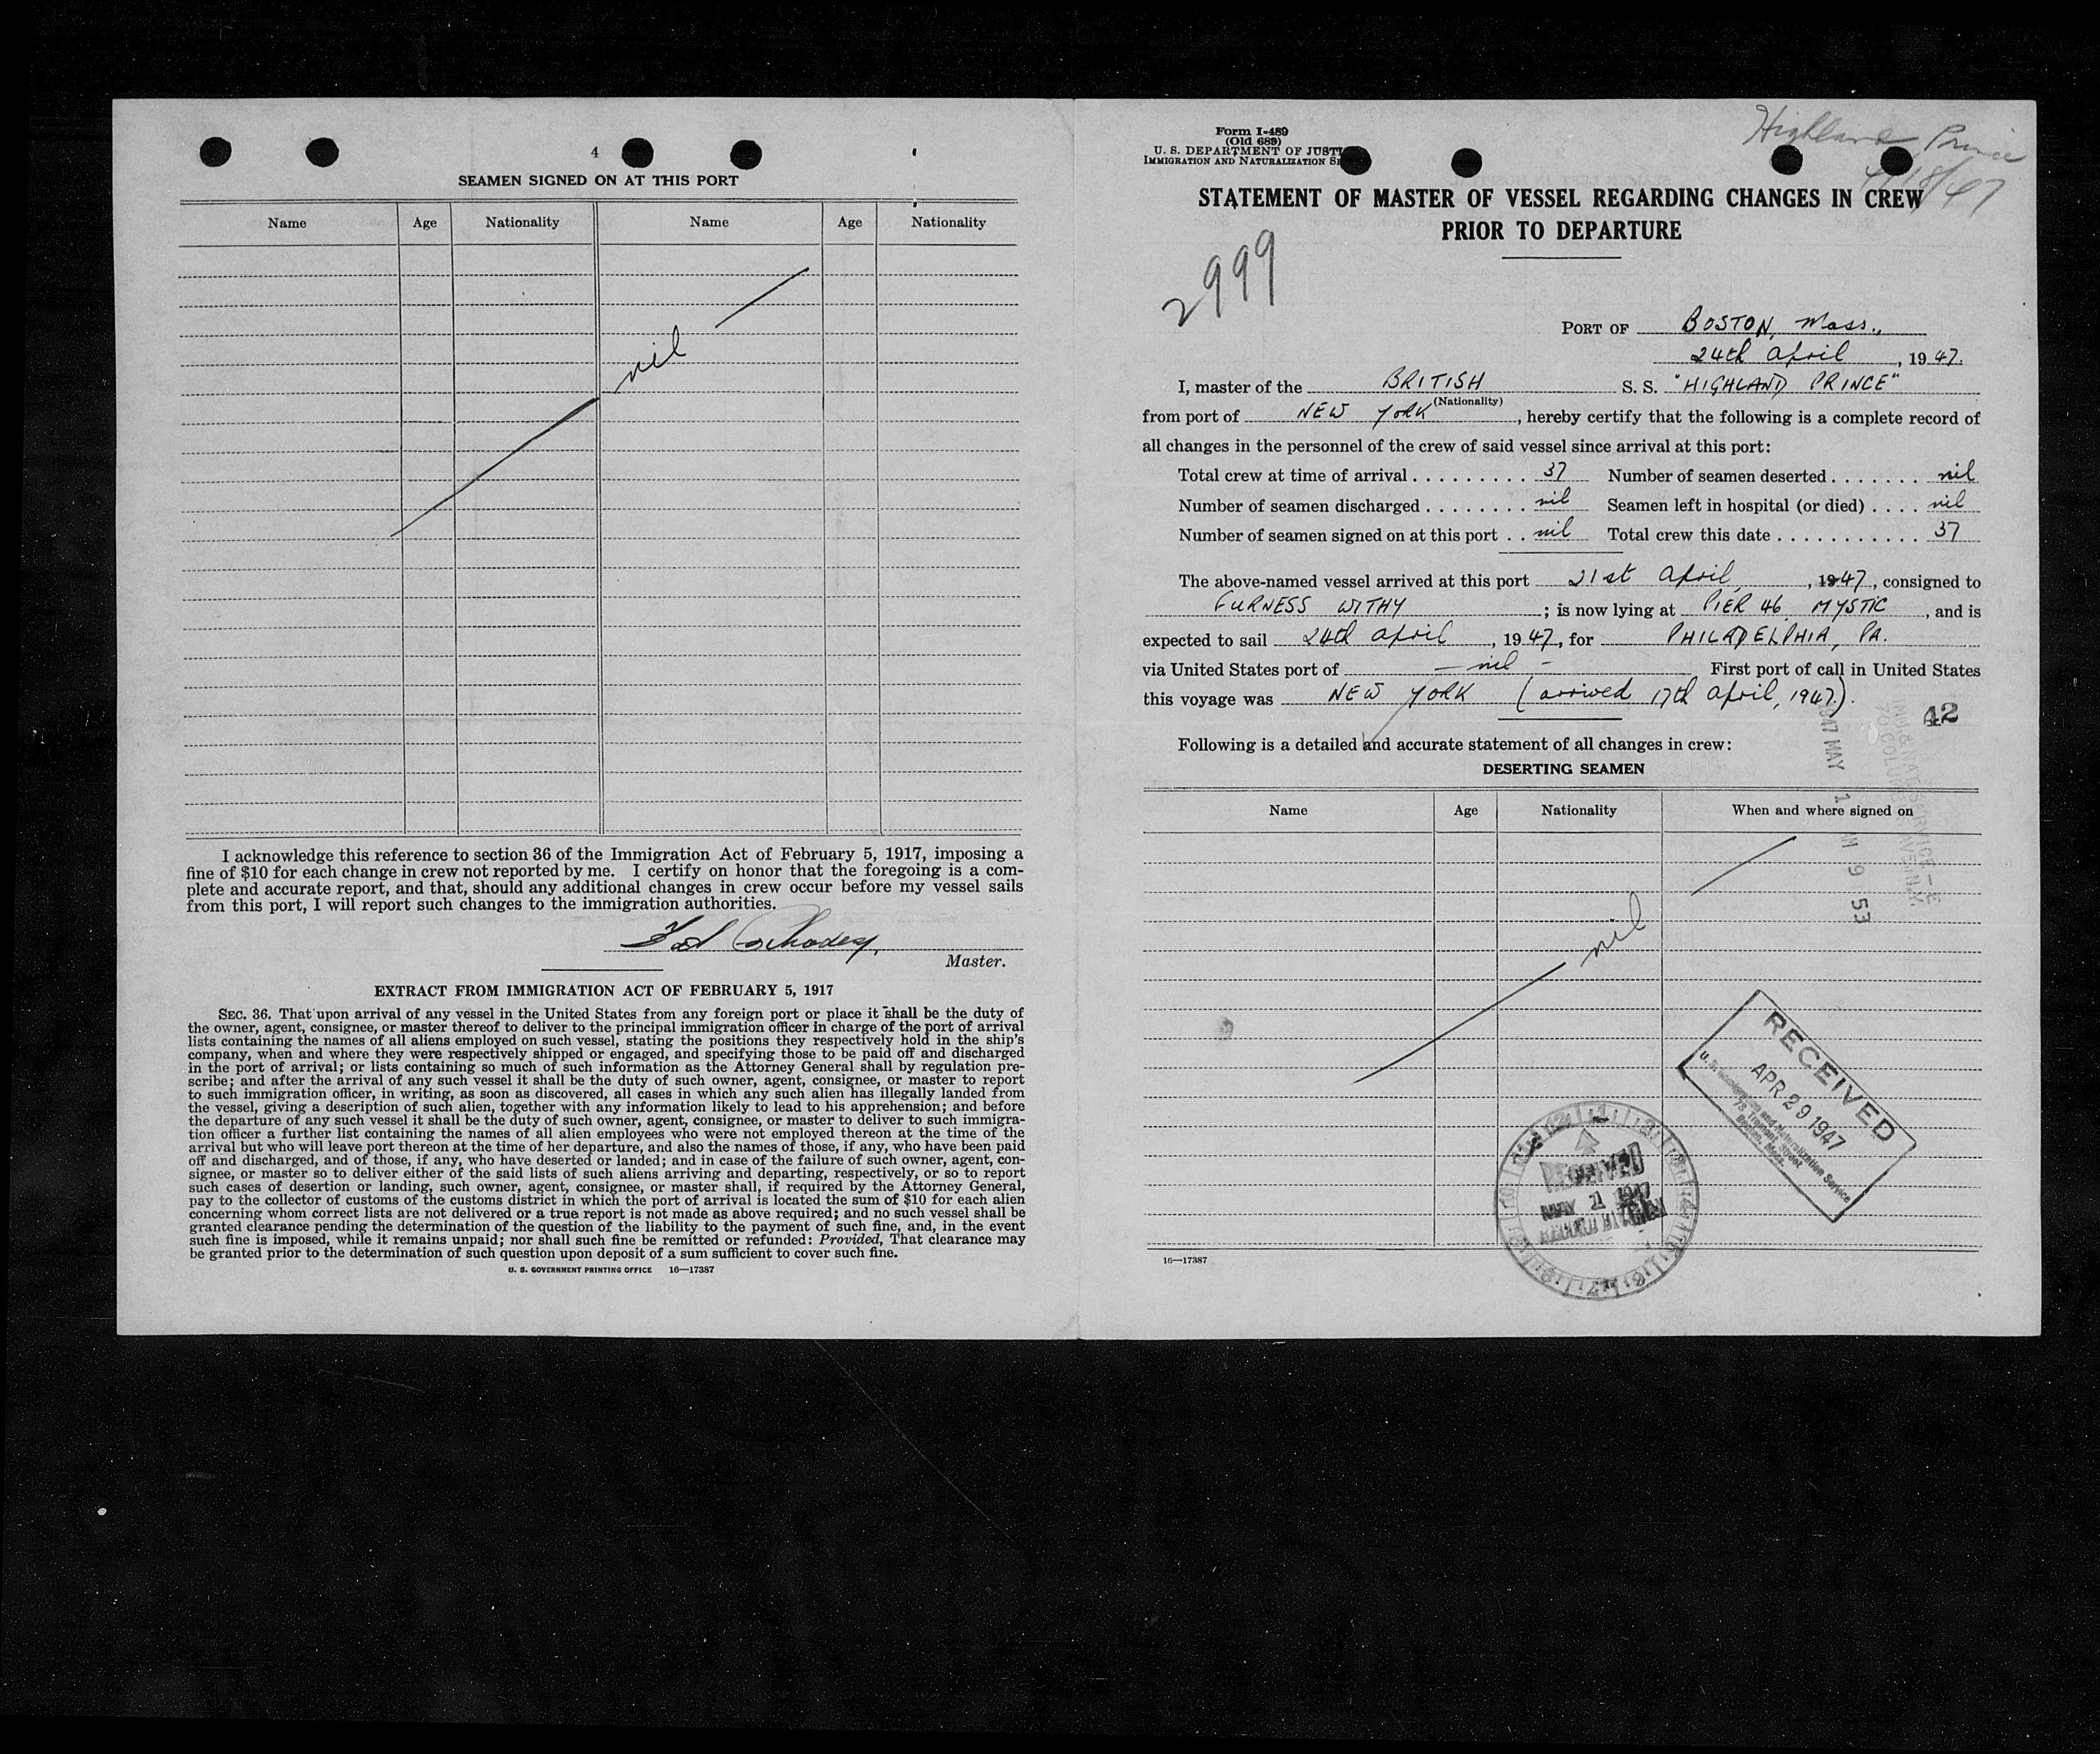 4
SEAMEN SIGNED ON AT THIS PORT
Name Age Nationality Name Age Nationality
nil
I acknowledge this reference to section 36 of the Immigration Act of February 5, 1917, imposing a
fine of $10 for each change in crew not reported by me. I certify on honor that the foregoing is a com-
plete and accurate report, and that, should any additional changes in crew occur before my vessel sails
from this port, I will report such changes to the immigration authorities.
Master.
EXTRACT FROM IMMIGRATION ACT OF FEBRUARY 5, 1917
SEC. 36. That upon arrival of any vessel in the United States from any foreign port or place it shall be the duty of
the owner, agent, consignee, or master thereof to deliver to the principal immigration officer in charge of the port of arrival
lists containing the names of all aliens employed on such vessel, stating the positions they respectively hold in the ship's
company, when and where they were respectively shipped or engaged, and specifying those to be paid off and discharged
in the port of arrival; or lists containing so much of such information as the Attorney General shall by regulation pre-
scribe; and after the arrival of any such vessel it shall be the duty of such owner, agent, consignee, or master to report
to such immigration officer, in writing, as soon as discovered, all cases in which any such alien has illegally landed from
the vessel, giving a description of such alien, together with any information likely to lead to his apprehension; and before
the departure of any such vessel it shall be the duty of such owner, agent, consignee, or master to deliver to such immigra-
tion officer a further list containing the names of all alien employees who were not employed thereon at the time of the
arrival but who will leave port thereon at the time of her departure, and also the names of those, if any, who have been paid
off and discharged, and of those, if any, who have deserted or landed; and in case of the failure of such owner, agent, con-
signee, or master so to deliver either of the said lists of such aliens arriving and departing, respectively, or so to report
such cases of desertion or landing, such owner, agent, consignee, or master shall, if required by the Attorney General,
pay to the collector of customs of the customs district in which the port of arrival is located the sum of $10 for each alien
concerning whom correct lists are not delivered or a true report is not made as above required; and no such vessel shall be
granted clearance pending the determination of the question of the liability to the payment of such fine, and, in the event
such fine is imposed, while it remains unpaid; nor shall such fine be remitted or refunded: Provided, That clearance may
be granted prior to the determination of such question upon deposit of a sum sufficient to cover such fine.
U. S. GOVERNMENT PRINTING OFFICE 16—17387
Highland Prince
4/18/47
Form I-489
(Old 689)
U. S. DEPARTMENT OF JUSTI
IMMIGRATION AND NATURALIZATION S
STATEMENT OF MASTER OF VESSEL REGARDING CHANGES IN CREW
PRIOR TO DEPARTURE
2999
PORT OF BOSTON, Mass.,
24th April, 1947.
I, master of the BRITISH S. S. "HIGHLAND PRINCE"
(Nationality)
from port of NEW YORK, hereby certify that the following is a complete record of
all changes in the personnel of the crew of said vessel since arrival at this port:
Total crew at time of arrival . . . . . . . . . 37 Number of seamen deserted . . . . . . . nil
Number of seamen discharged . . . . . . . . nil Seamen left in hospital (or died) . . . . nil
Number of seamen signed on at this port . . nil Total crew this date . . . . . . . . . . . 37
The above-named vessel arrived at this port 21st April, 1947, consigned to
FURNESS WITHY ; is now lying at PIER 46 MYSTIC, and is
expected to sail 24th April, 1947, for PHILADELPHIA, PA.
via United States port of — nil - First port of call in United States
this voyage was NEW YORK (arrived 17th April, 1947).
42
Following is a detailed and accurate statement of all changes in crew:
1947 MAY 1 AM 9 53
DESERTING SEAMEN
Name Age Nationality When and where signed on
nil
RECEIVED
APR 29 1947
U. S. Immigration and Naturalization Service
73 Tremont Street
Boston, Mass.
RECEIVED
MAY 1 1947
16—17387